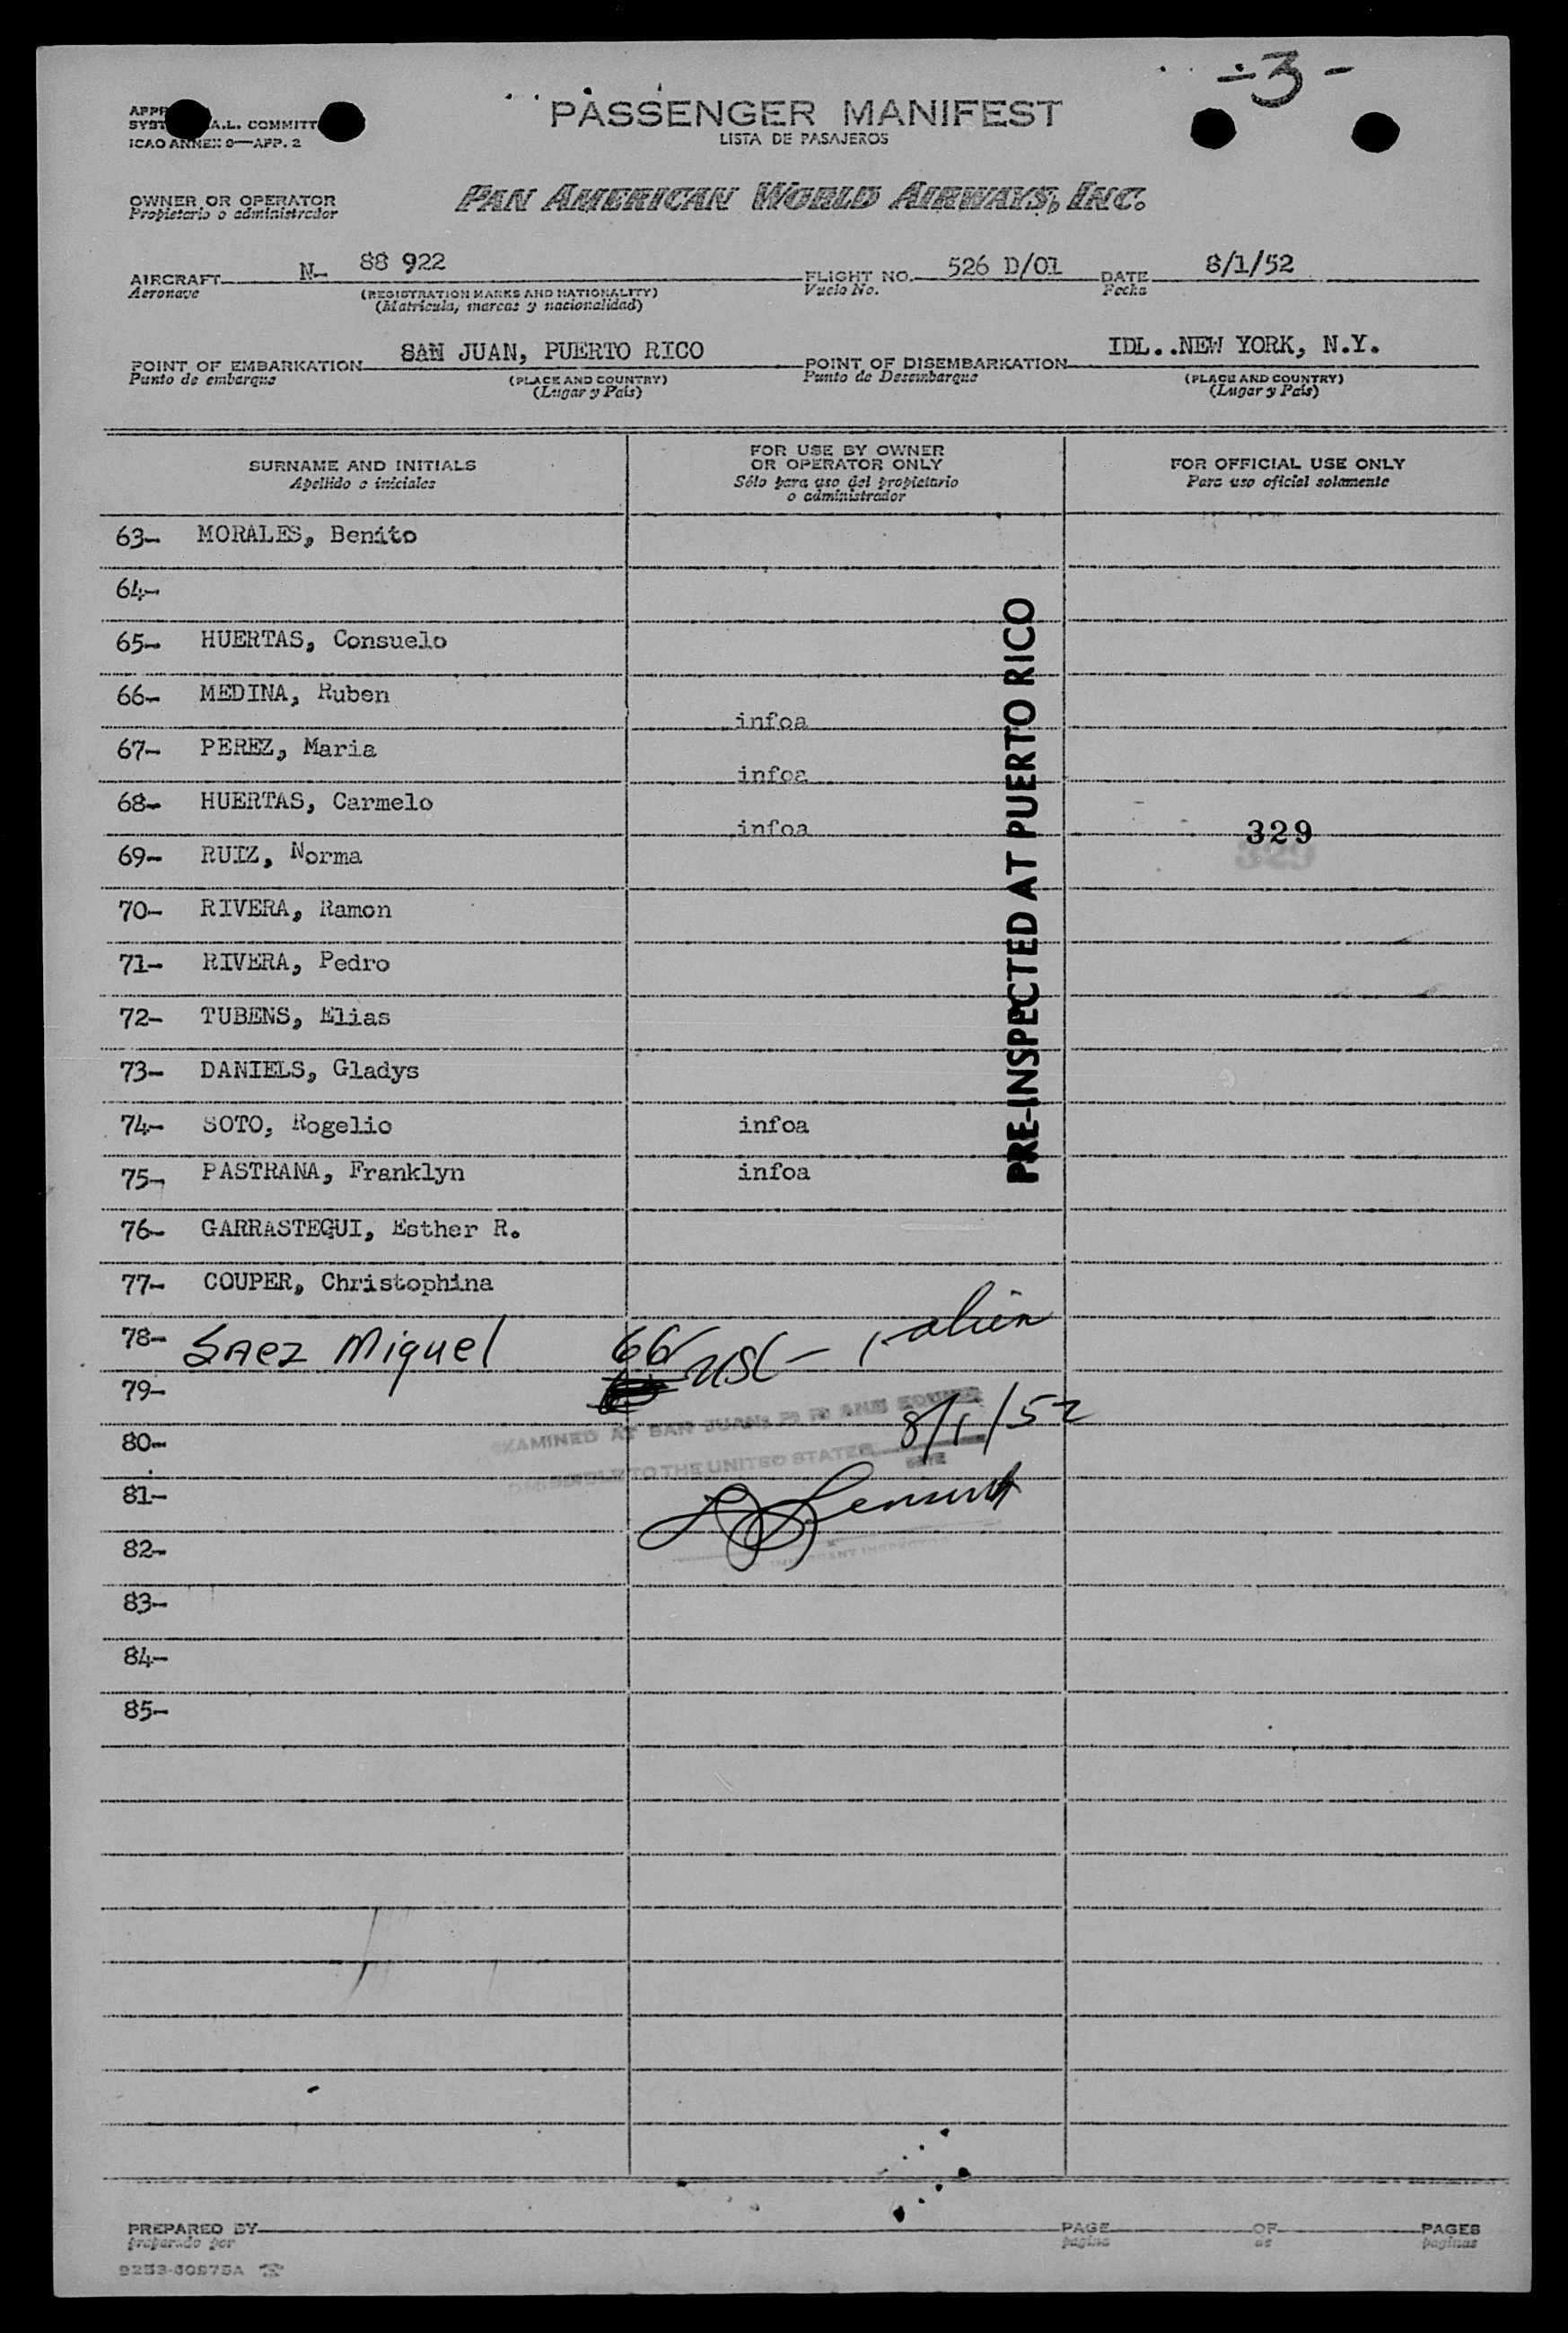 -3-
A.L. COMMITT
ICAO ANNEX 9—APP. 2
PASSENGER MANIFEST
LISTA DE PASAJEROS
OWNER OR OPERATOR
Propietario o administrador
PAN AMERICAN WORLD AIRWAYS, INC.
AIRCRAFT N- 88 922 FLIGHT NO. 526 D/01 DATE 8/1/52
Aeronave (REGISTRATION MARKS AND NATIONALITY) Vuelo No. Fecha
(Matrícula, marcas y nacionalidad)
POINT OF EMBARKATION SAN JUAN, PUERTO RICO POINT OF DISEMBARKATION IDL..NEW YORK, N.Y.
Punto de embarque (PLACE AND COUNTRY) Punto de Desembarque (PLACE AND COUNTRY)
(Lugar y País) (Lugar y País)
SURNAME AND INITIALS
Apellido e iniciales
FOR USE BY OWNER
OR OPERATOR ONLY
Sólo para uso del propietario
o administrador
FOR OFFICIAL USE ONLY
Para uso oficial solamente
63- MORALES, Benito
64-
65- HUERTAS, Consuelo
66- MEDINA, Ruben
infoa
67- PEREZ, Maria
infoa
68- HUERTAS, Carmelo
infoa 329
69- RUIZ, Norma
70- RIVERA, Ramon
71- RIVERA, Pedro
72- TUBENS, Elias
73- DANIELS, Gladys
74- SOTO, Rogelio infoa
75- PASTRANA, Franklyn infoa
PRE-INSPECTED AT PUERTO RICO
76- GARRASTEGUI, Esther R.
77- COUPER, Christophina
78- SAez Miguel 66 USC - 1-alien
79-
EXAMINED AT SAN JUAN, P R AND FOUND
80- 8/1/52
ADMISSIBLE TO THE UNITED STATES DATE
81-
82-
IMMIGRANT INSPECTOR
83-
84-
85-
PREPARED BY PAGE OF PAGES
preparado por pagina de paginas
9253-60975A